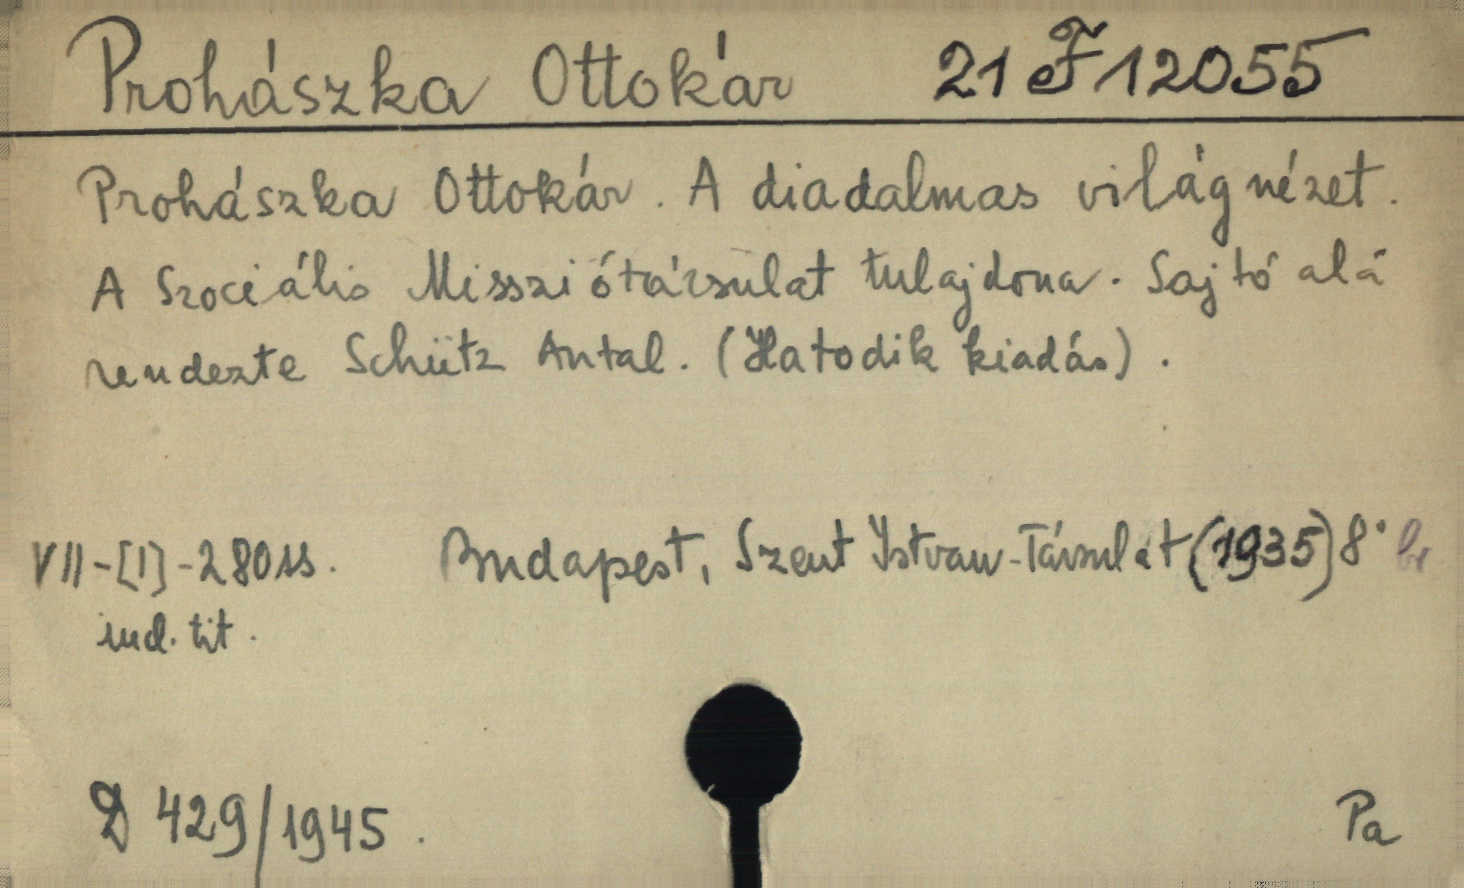 Prohászka Ottokár 21 F 12055
Prohászka Ottokár. A diadalmas világnézet.
A Szociális Missziótársulat tulajdona. Sajtó alá
rendezte Schütz Antal. (Hatodik kiadás).
VII-[1]-280 ss. Budapest, Szent István-Társulat (1935) 8°
ind. tit.
D 429/1945.
Pa